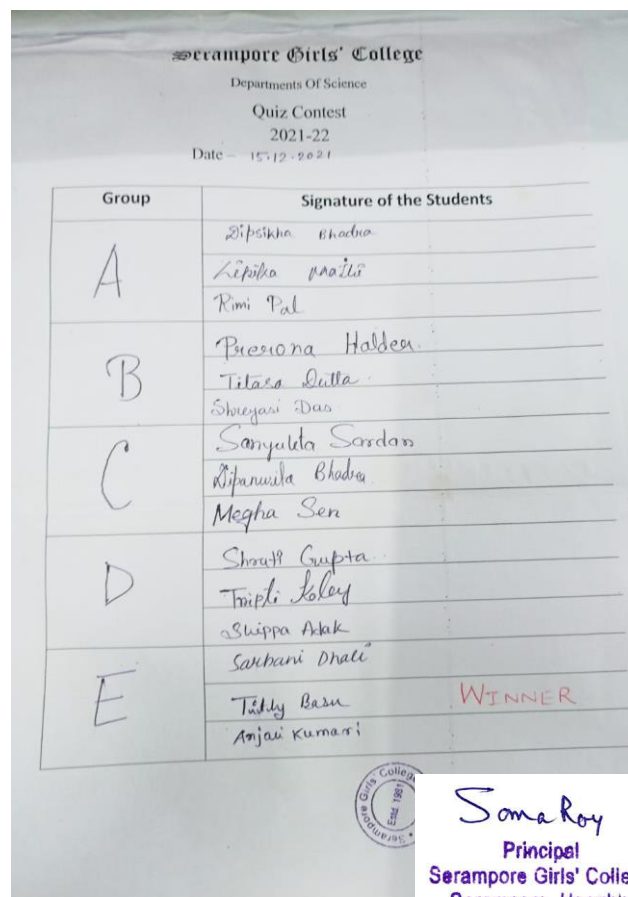 Serampore Girls' College
Departments Of Science
Quiz Contest
2021-22
Date - 15.12.2021
Group Signature of the Students
A
Dipsikha Bhadra
Lipika Maiti
Rimi Pal
B
Prerona Halder.
Titasa Dutta
Shreyasi Das
C
Sanyukta Sardar
Dipanwita Bhadra
Megha Sen
D
Shruti Gupta
Tripti Koley
Shippa Adak
E
Sarbani Dhali
Basu WINNER
Anjali Kumari
Serampore Girls' College
Estd 1981
Soma Roy
Principal
Serampore Girls' Colle